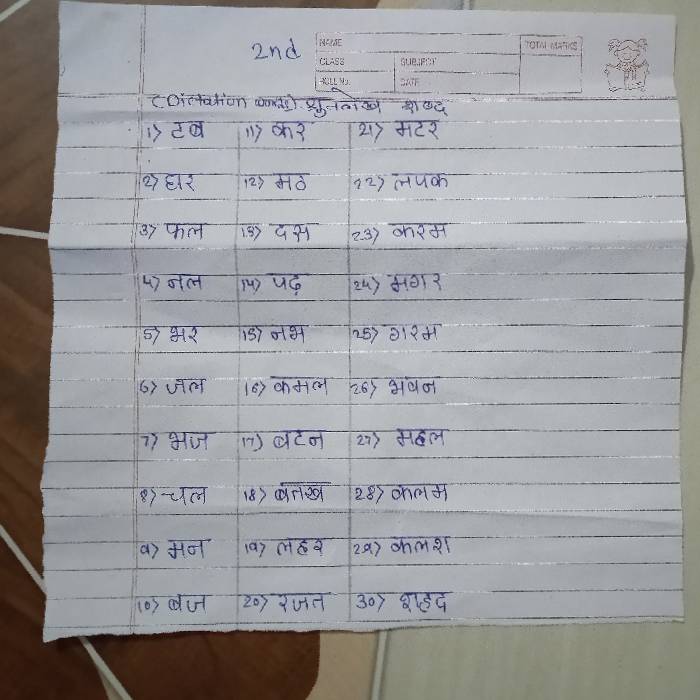 2nd
NAME
TOTAL MARKS
CLASS SUBJECT
ROLL No. DATE
(Dictation words) श्रुतलेख शब्द
1) टब 11) कर 21) मटर
2) घर 12) मठ 22) लपक
3) फल 13) दस 23) करम
4) नल 14) पढ़ 24) मगर
5) भर 15) नभ 25) गरम
6) जल 16) कमल 26) भवन
7) भज 17) बटन 27) महल
8) चल 18) बतख 28) कलम
9) मन 19) लहर 29) कलश
10) बज 20) रजत 30) शहद